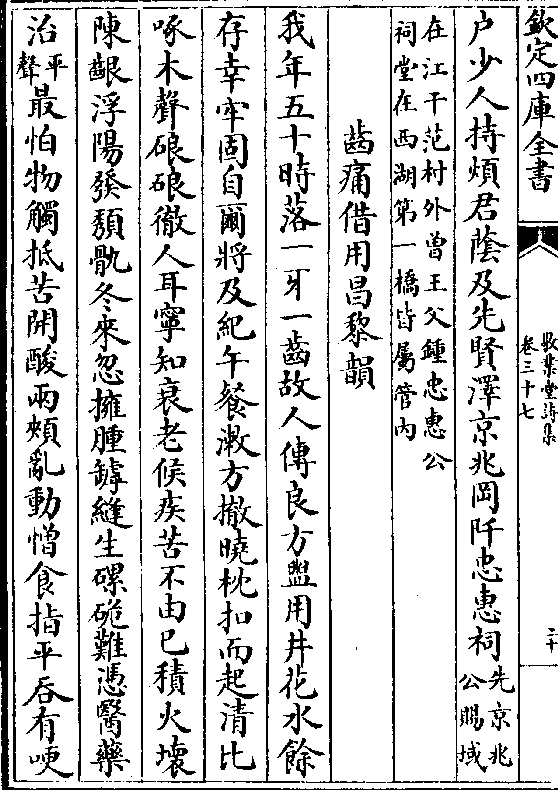 欽定四庫全書
敬業堂詩集
卷三十七
三十
户少人持煩君蔭及先賢澤京兆岡阡忠惠祠先京兆公賜域
在江干范村外曾王父鍾忠惠公
祠堂在西湖第一橋皆屬管内
齒痛借用昌黎韻
我年五十時落一牙一齒故人傳良方盥用井花水餘
存幸牢固自爾將及紀午餐漱方撤曉枕扣而起清比
啄木聲硠硠徹人耳寧知衰老候疾苦不由已積火壞
陳齦浮陽發頽骩冬來忽擁腫罅縫生磥硊難憑醫藥
治平聲最怕物觸抵苦開酸兩頰亂動憎食指平吞有哽